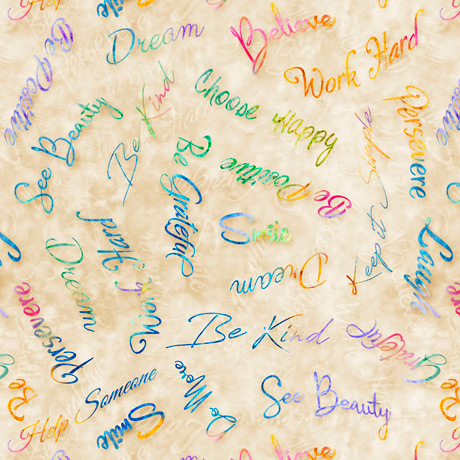 Smile
Dream
Believe
Work Hard
Be Positive
Be Kind
Choose Happy
Persevere
See Beauty
Be Grateful
Be Positive
Be
Keep it Simple
Smile
Dream
Laugh
Dream
Work Hard
Persevere
Be Kind
Grateful
Be
Help Someone
Smile
Do More
See Beauty
Believe